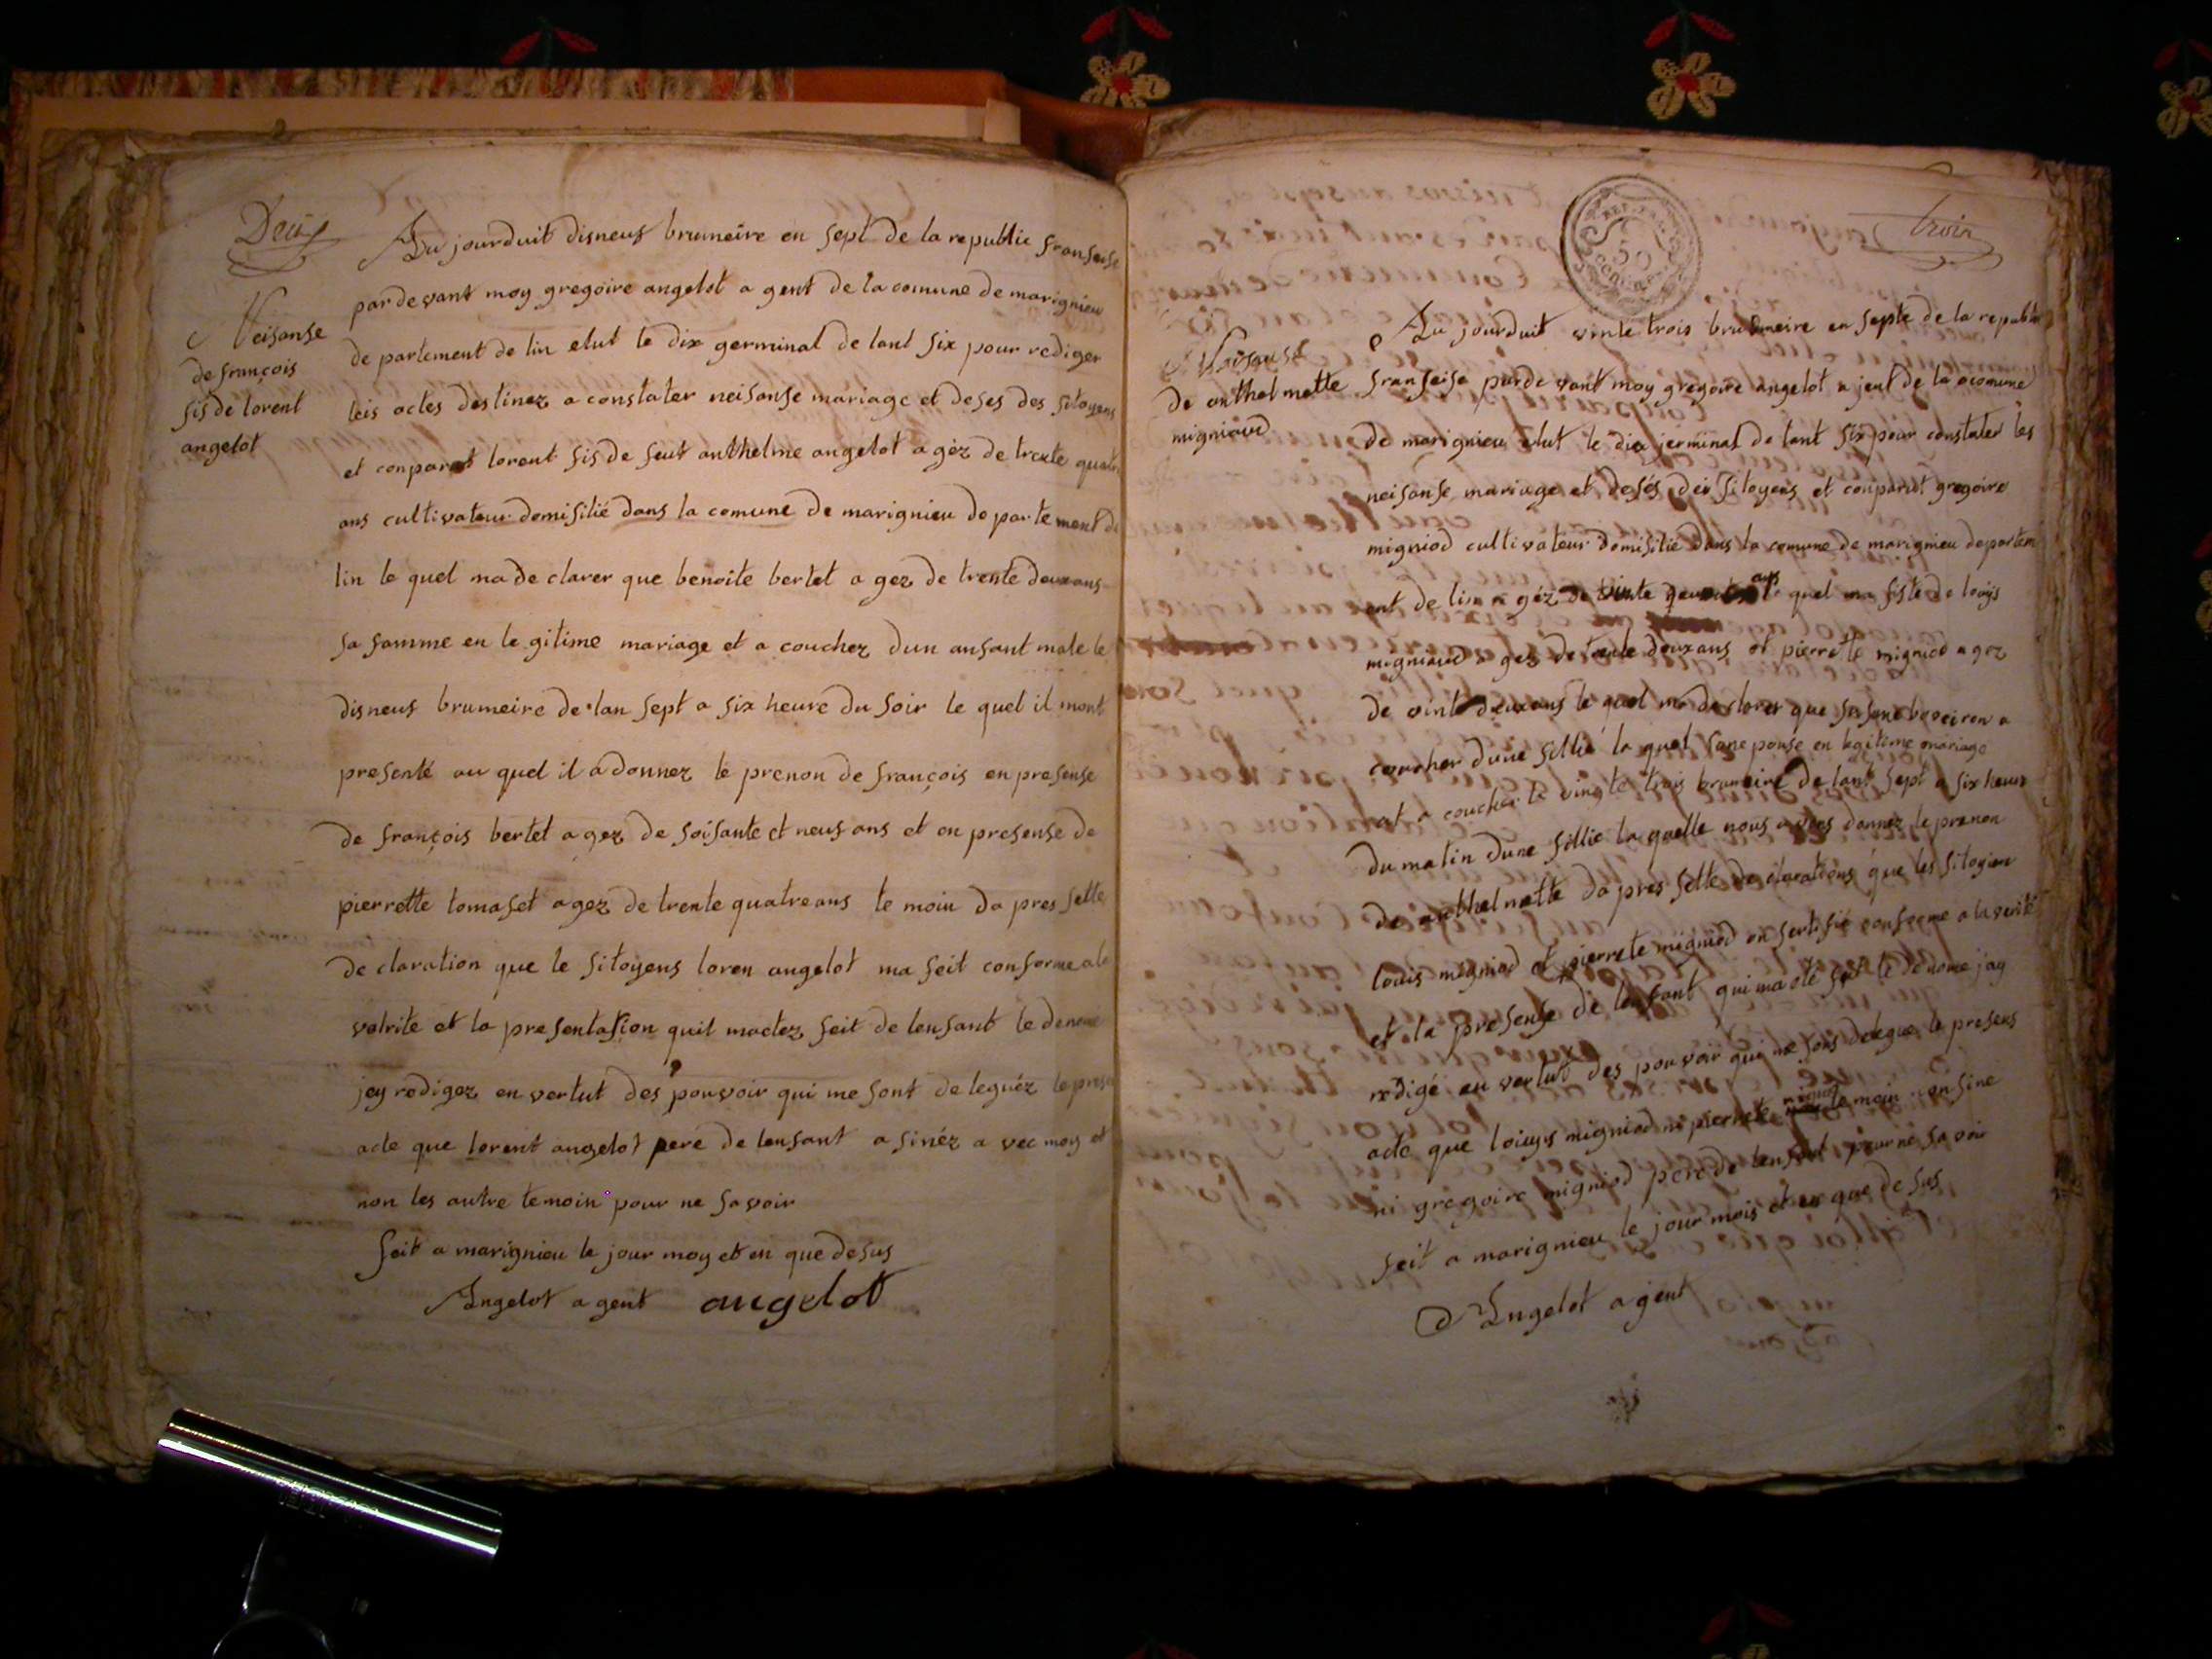 Deux
Neisanse
de françois
fis de lorent
angelot
Au jourduit disneuf brumeire en sept de la republic franseise
pardevant moy gregoire angelot a gent de la comune de marignieu
de partement de lin elut le dix germinal de lant six pour rediger
leis actes destinez a constater neisanse mariage et deses des sitoyens
et conparot lorent fis de feut anthelme angelot a gèz de trente quatre
ans cultivateur domisilié dans la comune de marignieu de partement de
lin le quel ma de clarer que benoite bertet a gez de trente deux ans
sa famme en le gitime mariage et a couchez dun anfant male le
disneuf brumeire de lan sept a six heure du soir le quel il mont
presenté au quel il a donnez le prenon de françois en presense
de françois bertet a gez de soisante et neuf ans et en presense de
pierrette tomaset a gez de trente quatre ans te moin da pres sette
de claration que le sitoyens loren angelot ma feit conforme a la
valrite et la presentasion quil mactez feit de lenfant le denome
jey redigez en vertut des pouvoir qui me sont de leguéz le presen
acte que lorent angelot pere de lenfant a sinéz a vec moy et
non les autre temoin pour ne savoir
feit a marignieu le jour moy et en que desus
Angelot agent angelot
trois
50
Neisanse
de anthelmette
migniaud
Au jourduit vinte trois brumeire en septe de la republic
franseise pardevant moy gregoire angelot a jent de la comune
de marignieu elut le dix jerminal de lant six pour constater les
neisanse mariage et deses des sitoyens et conparut gregoire
migniod cultivateur domisilié dans la comune de marignieu departem
ent de lin a géz de vinte ans le quel ma siste de louys
migniaud a gez de trente deux ans et pierrette migniod a gez
de vint deux ans le quel ma de clarer que a
coucher dune fillié la quel sanepousé en legitime mariage
at a coucher le vingte trois brumeire de lant sept a six heur
du matin dune fillie la quelle nous avons donnez le prenon
de anthelmette da pres sette de clarations que les sitoyien
louis migniod et pierrete migniod on sertifié conforme a la verité
et la presense de lenfant qui ma été feit le denome jay
redigé en vertut des pouvoir qui me sons delegué le presens
acte que louys migniod ni pierrete migniod temoin non sine
ni gregoire migniod pere de lenfant pour ne savoir
feit a marignieu le jour mois et en que de sus
Angelot agent